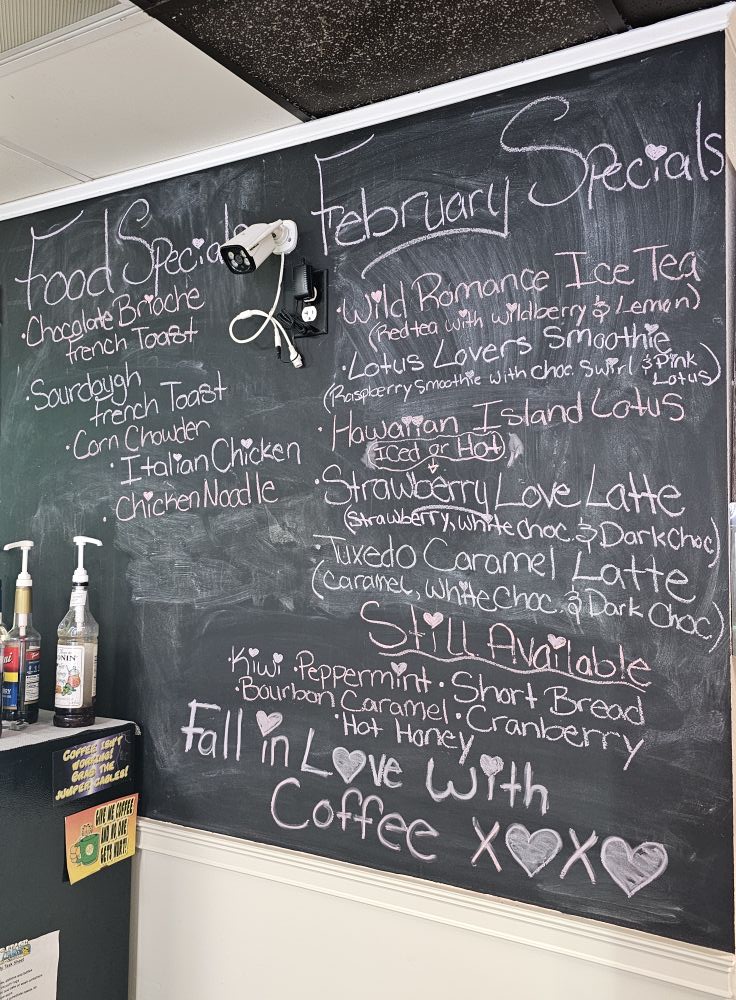 Food Special
·Chocolate Brioche
french Toast
·Sourdough
french Toast
·Corn Chowder
·Italian Chicken
·Chicken Noodle
February Specials
·Wild Romance Ice Tea
(Red tea with wildberry & Lemon)
·Lotus Lovers Smoothie
(Raspberry smoothie with choc. swirl & Pink
Lotus)
·Hawaiian Island Lotus
Iced or Hot
·Strawberry Love Latte
(Strawberry, white choc. & Dark Choc)
·Tuxedo Caramel Latte
(Caramel, white choc. & Dark Choc)
Still Available
·Kiwi ·Peppermint ·Short Bread
·Bourbon Caramel ·Cranberry
·Hot Honey
Fall in Love with
Coffee X♡X♡
COFFEE ISN'T
WORKING!
GRAB THE
JUMPER CABLES!
GIVE ME COFFEE
AND NO ONE
GETS HURT!